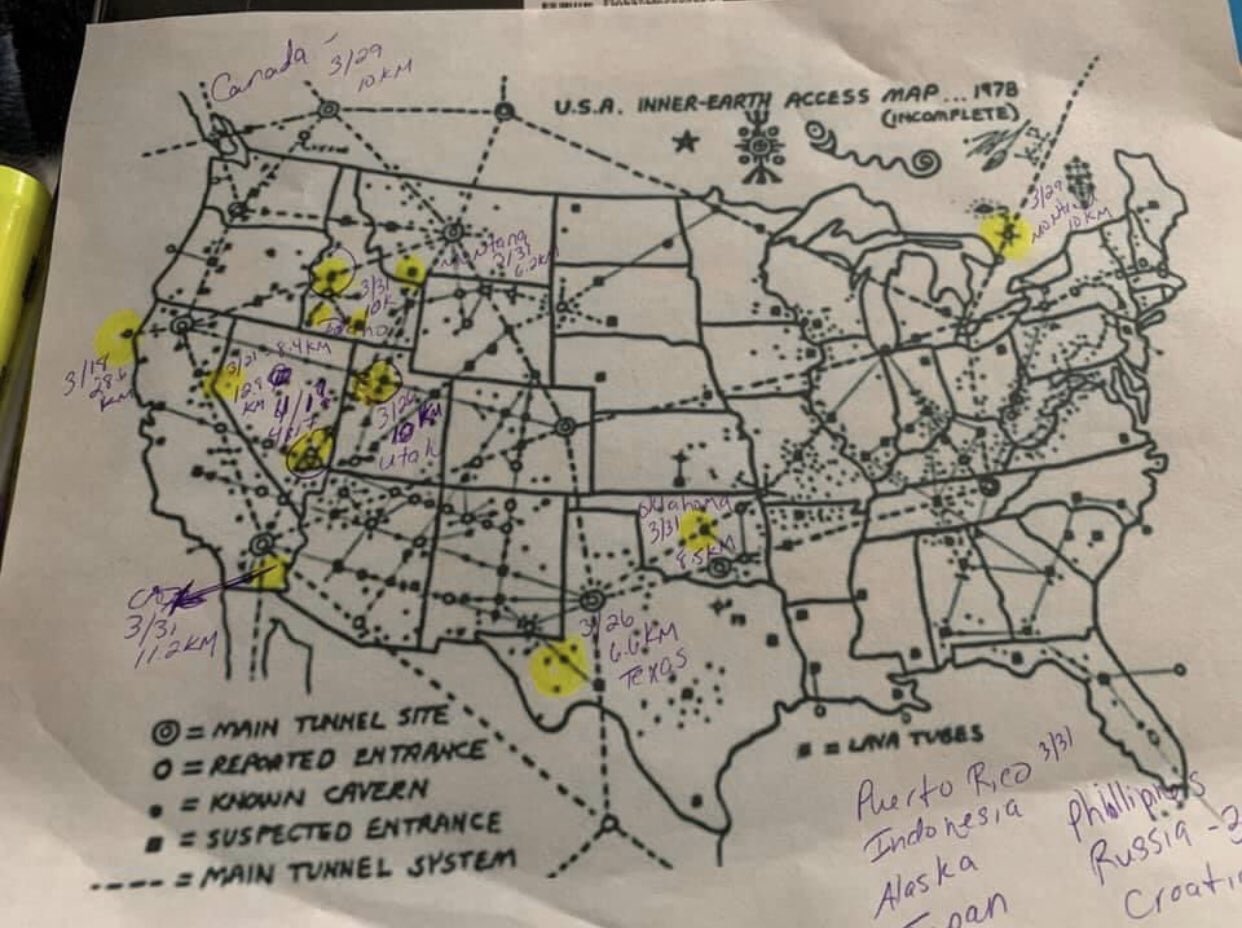 Canada - 3/29
10 KM
U.S.A. INNER-EARTH ACCESS MAP... 1978
(INCOMPLETE)
3/29
10 KM
Montana
3/31
6.2KM
3/31
10K
Idaho
3/18
28.6
KM
3/21
8.4 KM
KM
4/17
3/26
10 KM
Utah
Oklahoma
3/31
8.5KM
CA
3/31
11.2KM
3/26
6.6KM
Texas
◎ = MAIN TUNNEL SITE
O = REPORTED ENTRANCE
• = KNOWN CAVERN
■ = SUSPECTED ENTRANCE
---- = MAIN TUNNEL SYSTEM
= LAVA TUBES
Puerto Rico 3/31
Indonesia
Alaska
Phillipines
Russia -